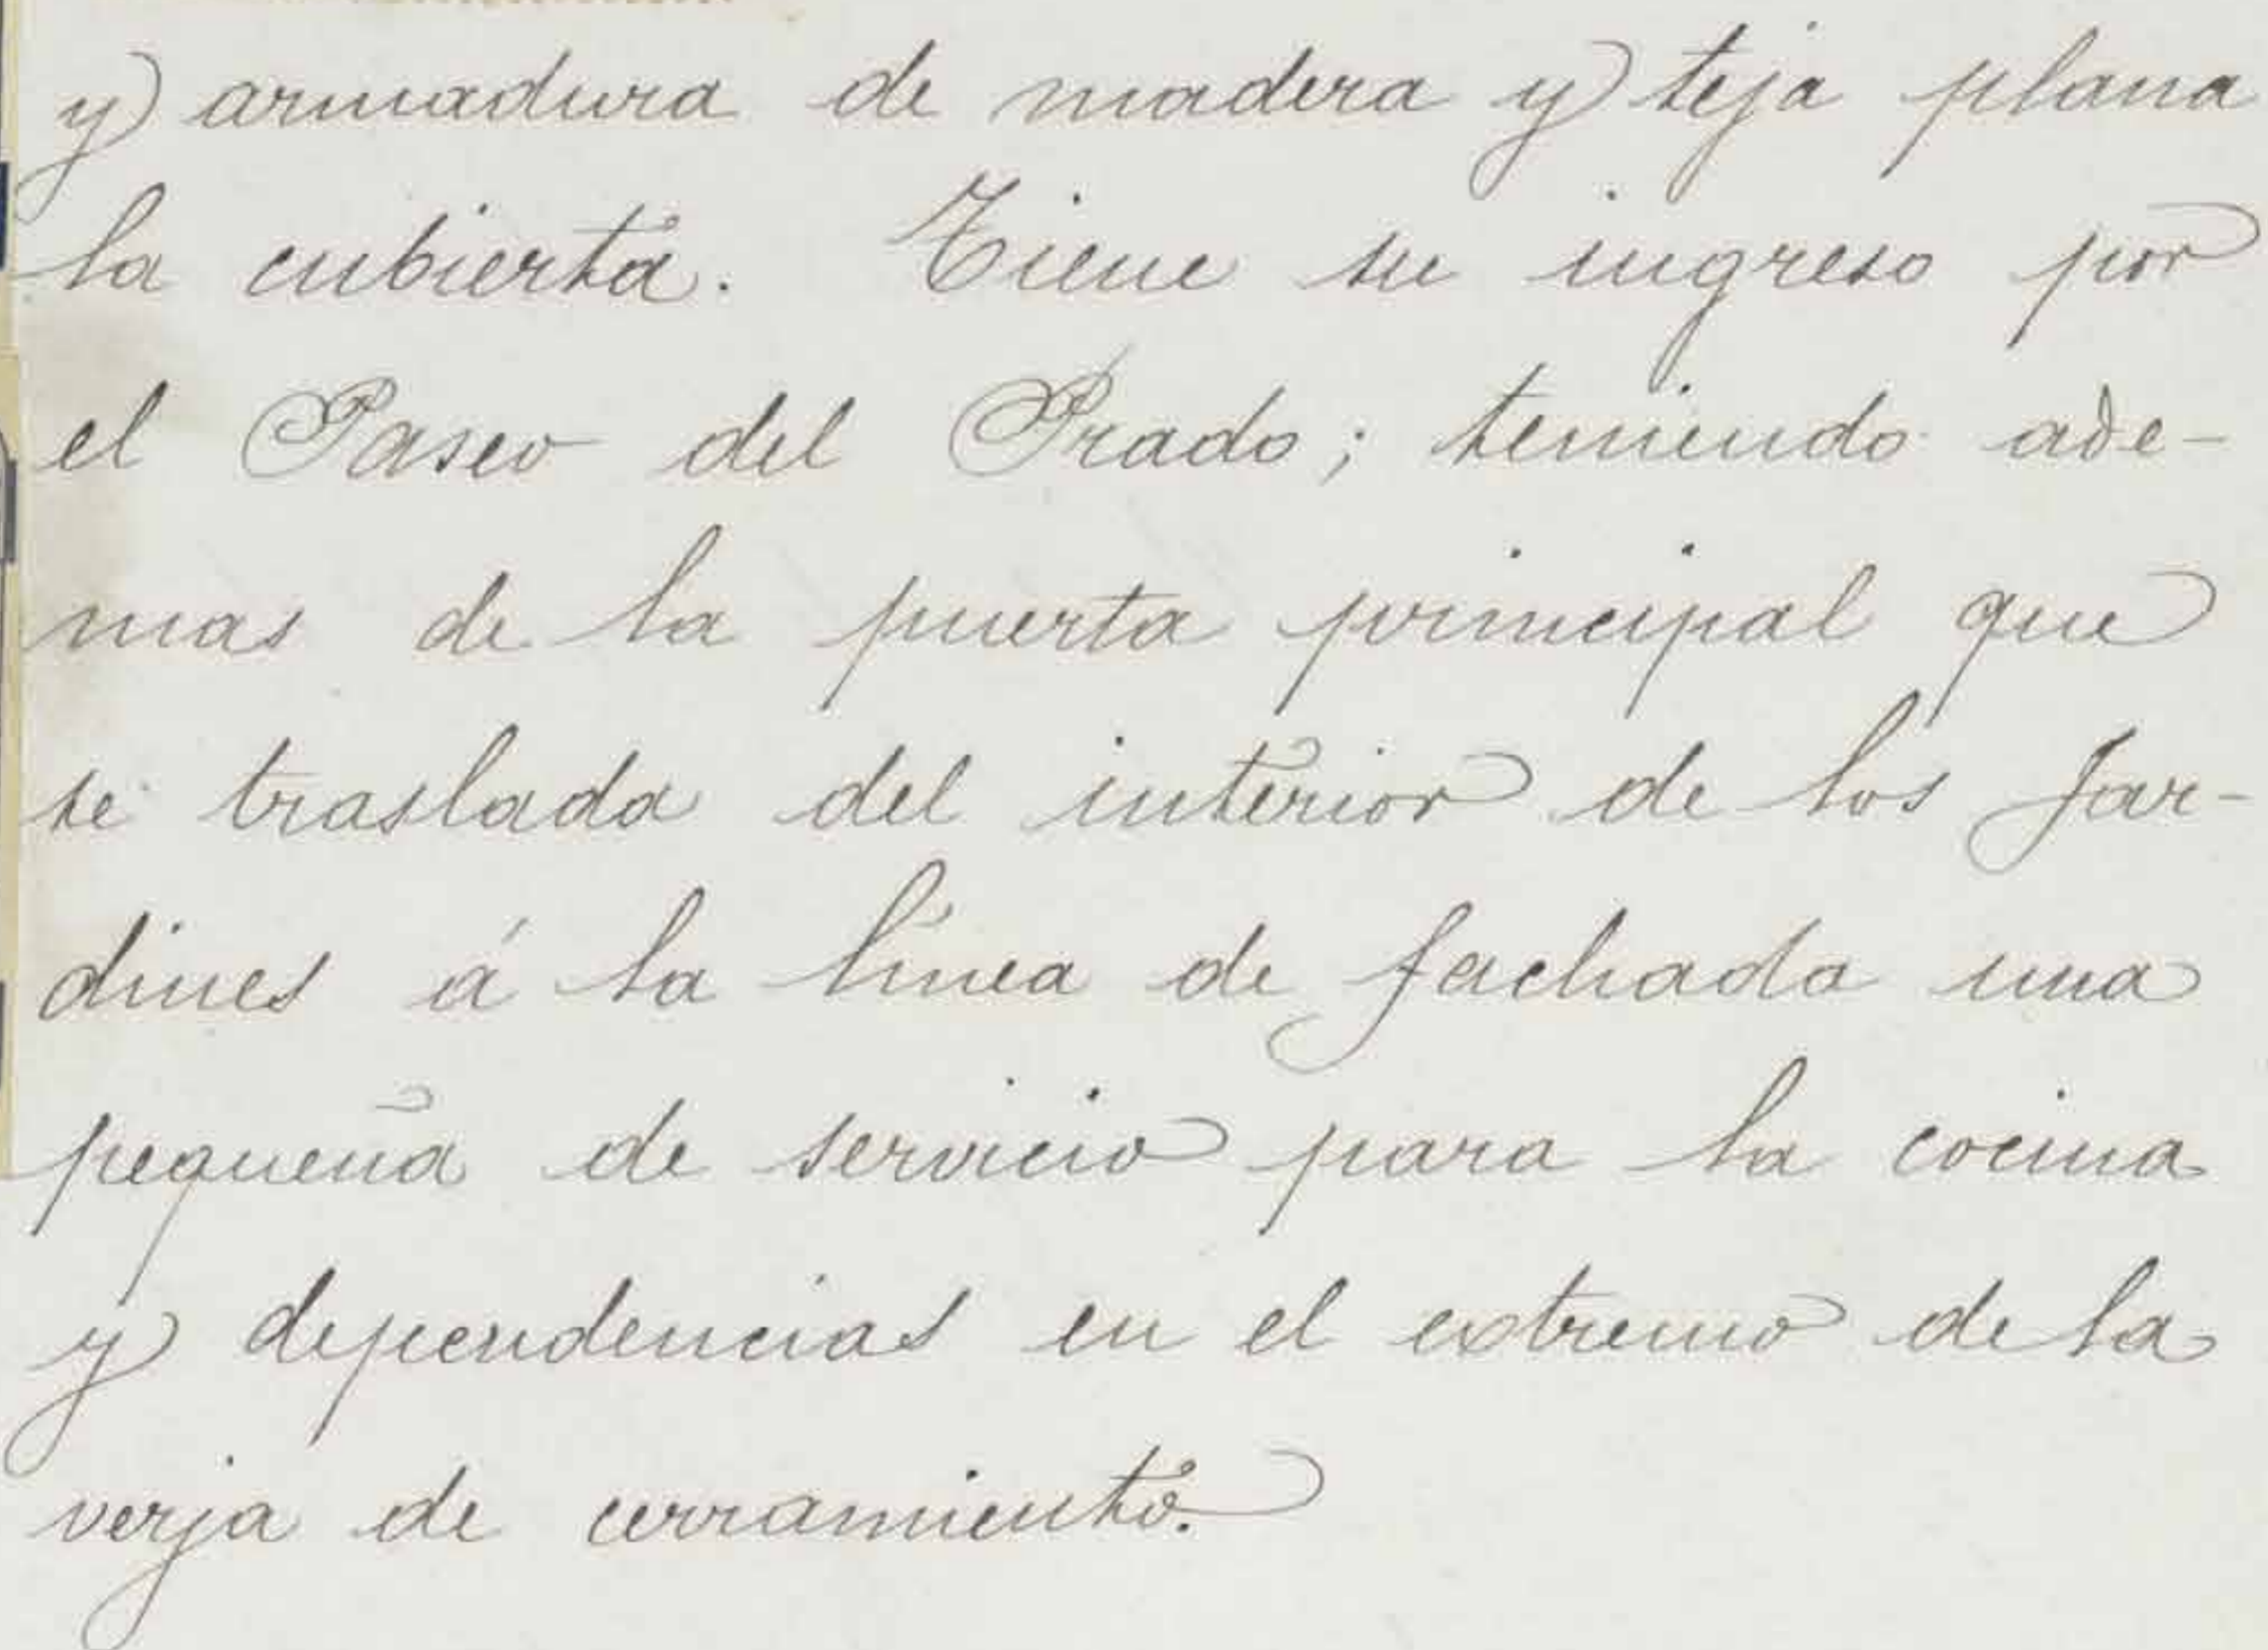 y armadura de madera y teja plana
la cubierta. Tiene su ingreso por
el Paseo del Prado; teniendo ade-
mas de la puerta principal que
se traslada del interior de los Jar-
dines á la línea de fachada una
pequeña de servicio para la cocina
y dependencias en el extremo de la
verja de cerramiento.